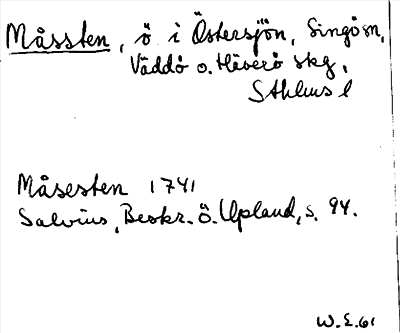 Måssten, ö i Östersjön, Singö sn,
Väddö o. Häverö skg,
Sthlms l
Måsesten 1741
Salvius, Beskr. ö. Upland, s. 94.
W.E. 61